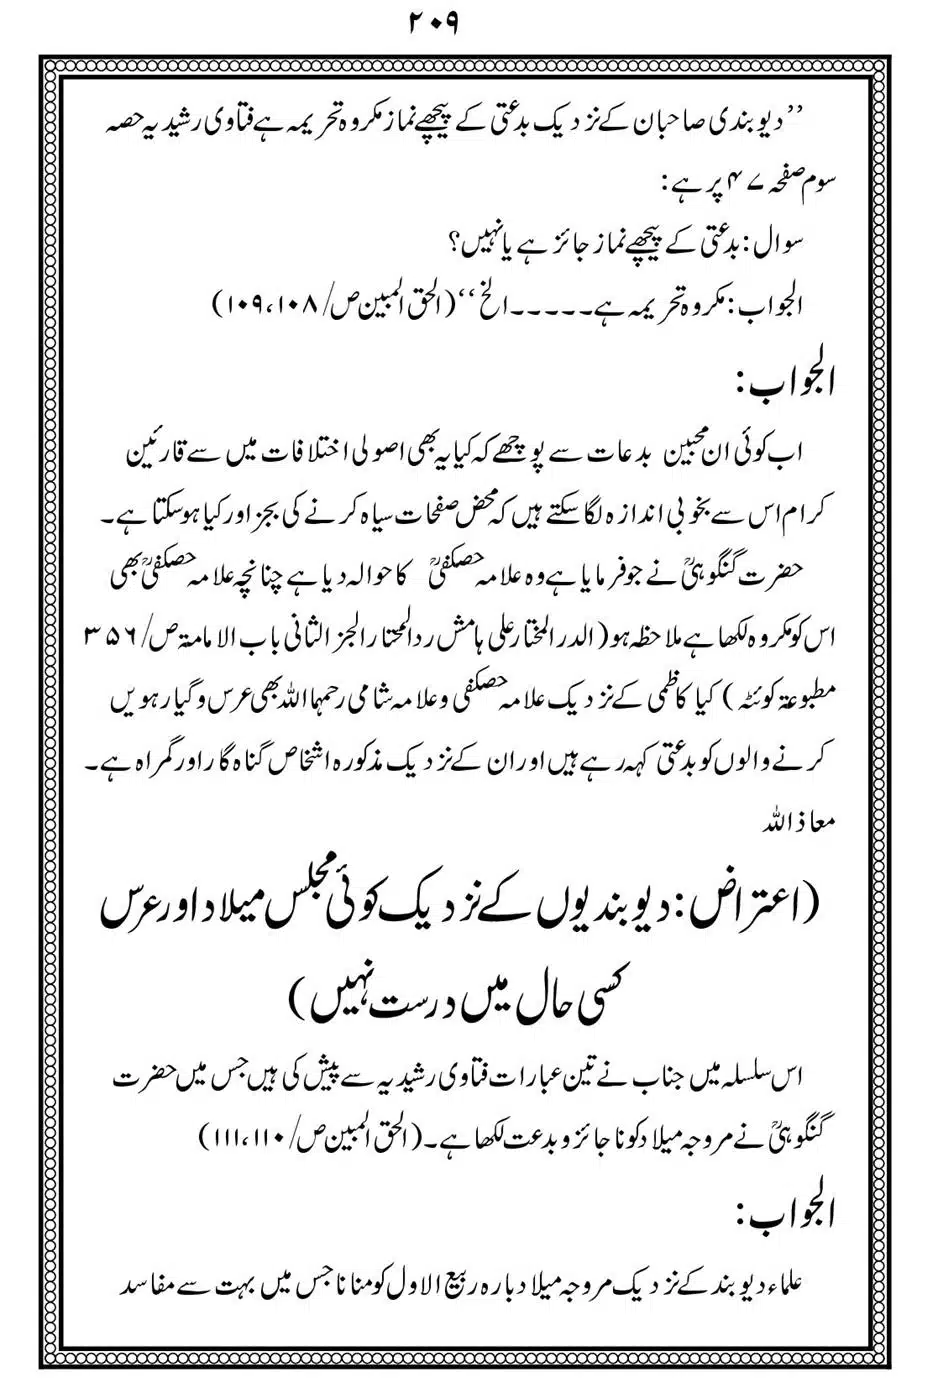 ۲۰۹
’’دیوبندی صاحبان کے نزدیک بدعتی کے پیچھے نماز مکروہ تحریمہ ہے فتاوی رشیدیہ حصہ
سوم صفحہ ۴۷ پر ہے:
سوال: بدعتی کے پیچھے نماز جائز ہے یا نہیں؟
الجواب: مکروہ تحریمہ ہے۔۔۔۔۔الخ‘‘ (الحق المبین ص/۱۰۸،۱۰۹)
الجواب:
اب کوئی ان محبین بدعات سے پوچھے کہ کیا یہ بھی اصولی اختلافات میں سے قارئین
کرام اس سے بخوبی اندازہ لگا سکتے ہیں کہ محض صفحات سیاہ کرنے کی بجز اور کیا ہو سکتا ہے۔
حضرت گنگوہیؒ نے جو فرمایا ہے وہ علامہ حصکفیؒ کا حوالہ دیا ہے چنانچہ علامہ حصکفیؒ بھی
اس کو مکروہ لکھا ہے ملاحظہ ہو (الدر المختار علی ہامش رد المحتار الجز الثانی باب الامامۃ ص/۳۵۶
مطبوعۃ کوئٹہ) کیا کاظمی کے نزدیک علامہ حصکفی و علامہ شامی رحمہما اللہ بھی عرس و گیارہویں
کرنے والوں کو بدعتی کہہ رہے ہیں اور ان کے نزدیک مذکورہ اشخاص گناہ گار اور گمراہ ہے۔
معاذ اللہ
(اعتراض: دیوبندیوں کے نزدیک کوئی مجلس میلاد اور عرس
کسی حال میں درست نہیں)
اس سلسلہ میں جناب نے تین عبارات فتاوی رشیدیہ سے پیش کی ہیں جس میں حضرت
گنگوہیؒ نے مروجہ میلاد کو ناجائز و بدعت لکھا ہے۔ (الحق المبین ص/۱۱۰،۱۱۱)
الجواب:
علماء دیوبند کے نزدیک مروجہ میلاد بارہ ربیع الاول کو منانا جس میں بہت سے مفاسد